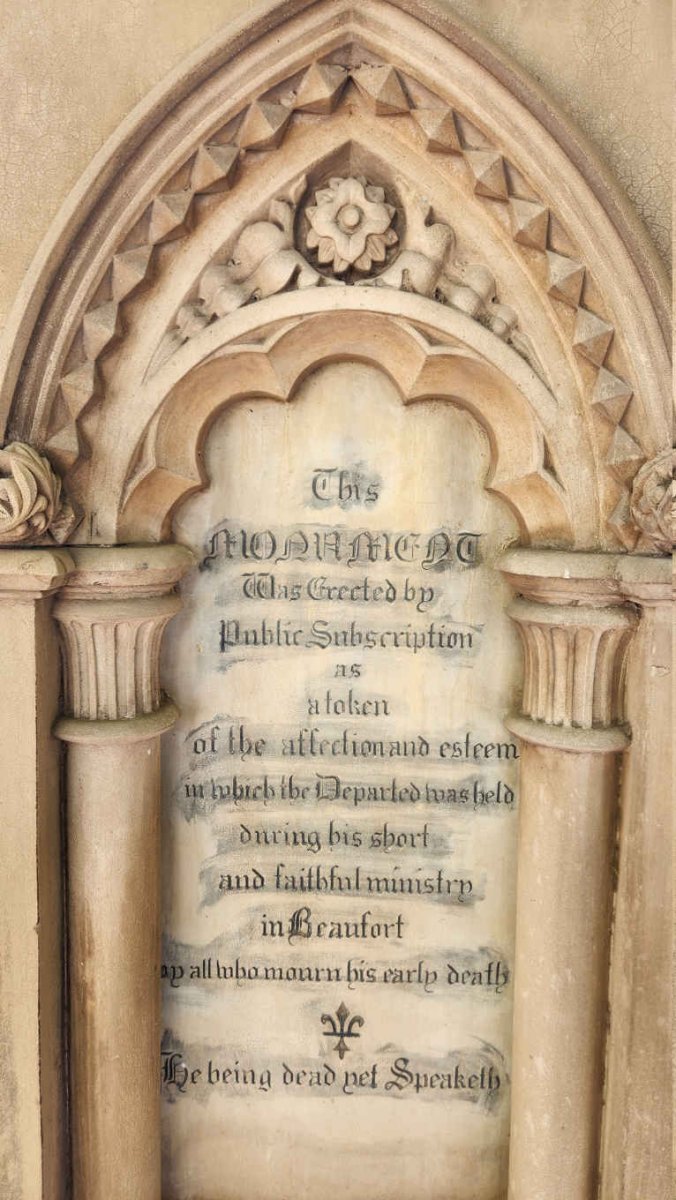 This
MONUMENT
Was Erected by
Public Subscription
as
a token
of the affection and esteem
in which the Departed was held
during his short
and faithful ministry
in Beaufort
by all who mourn his early death
He being dead yet Speaketh